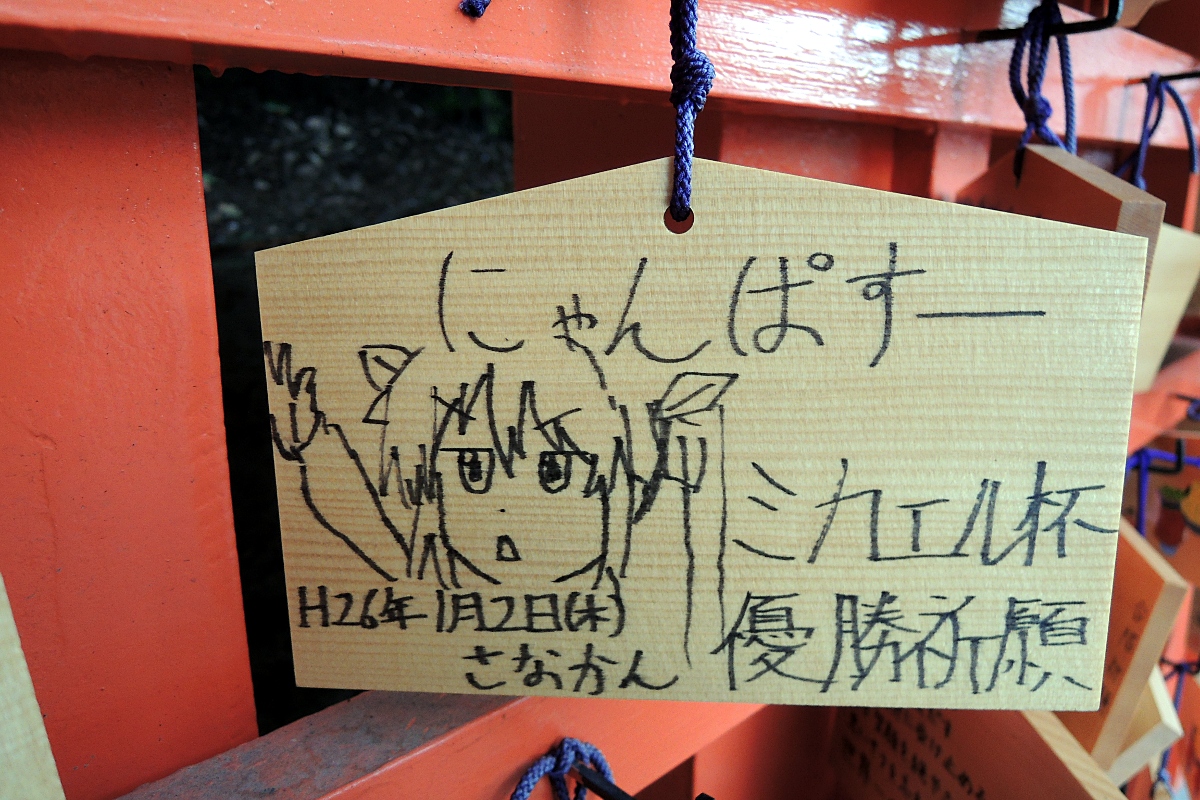 にゃんぱすー
ミカエル杯
優勝祈願
H26年1月2日(木)
さなかん